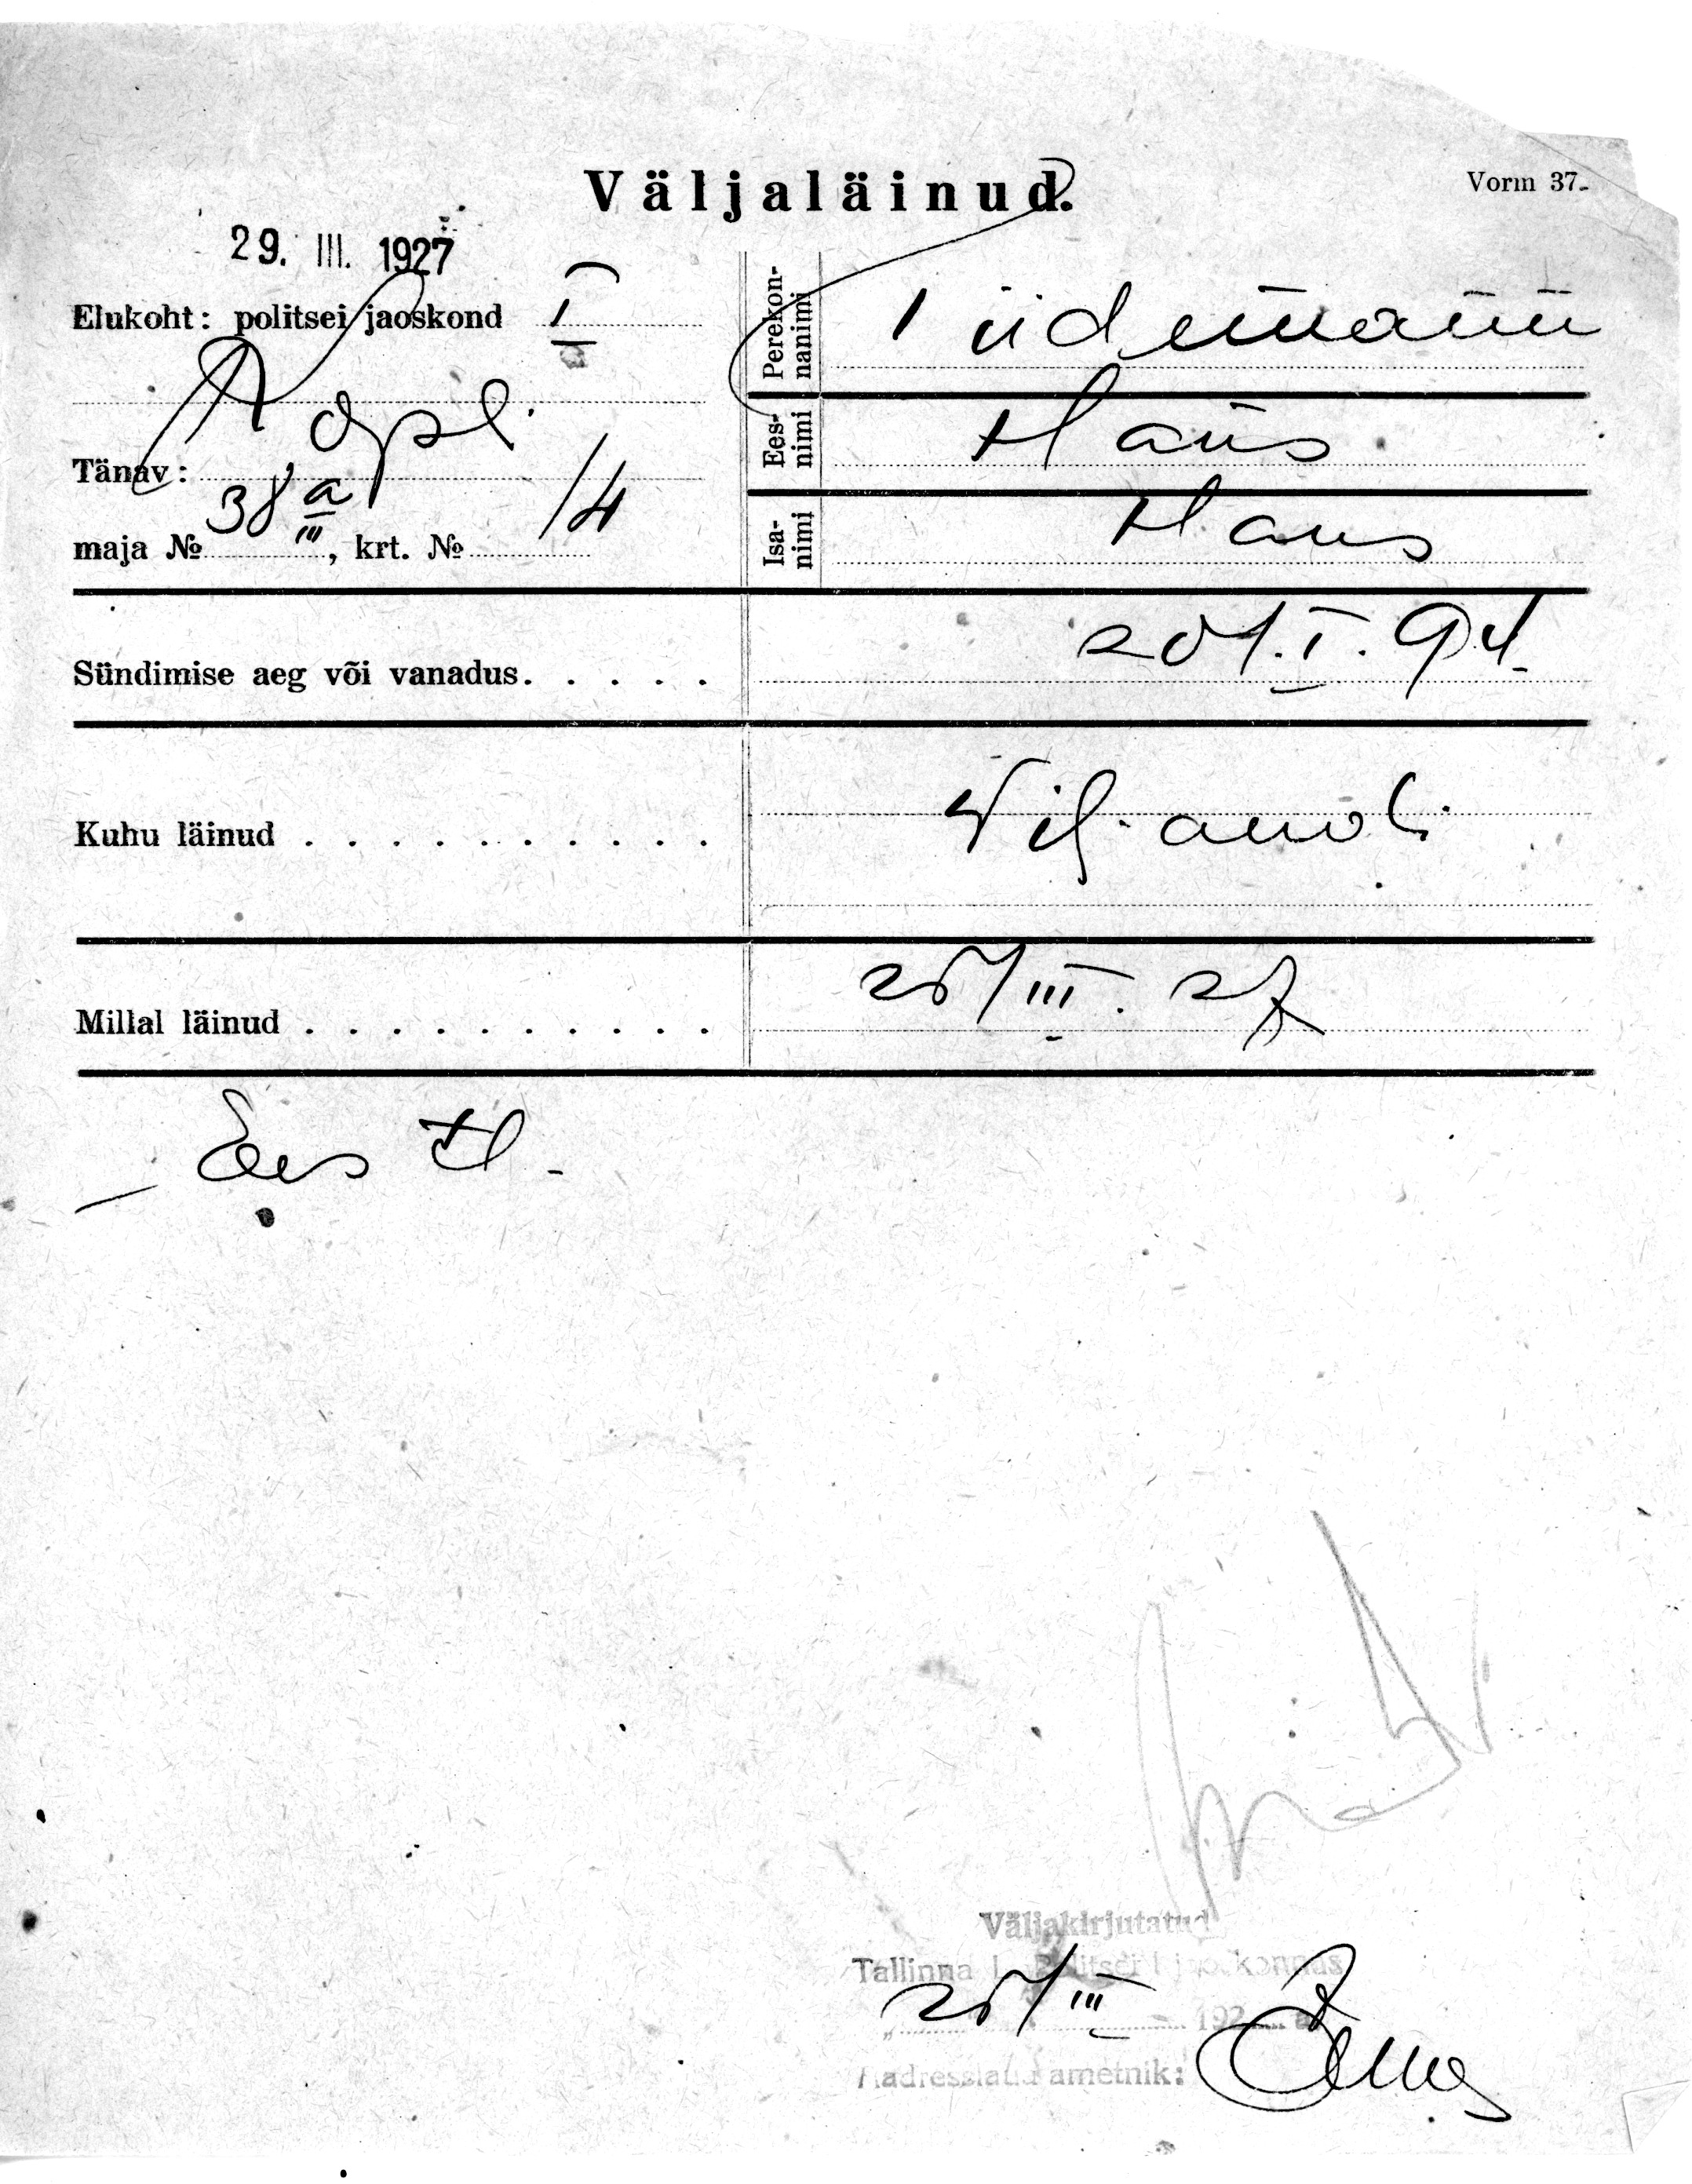 Väljaläinud.
Vorm 37.
29. III. 1927
Elukoht: politsei jaoskond I
Tänav: Kopli
maja № 38a III, krt. № 14
Perekonnanimi Tiidemann
Eesnimi Hans
Isanimi Hans
Sündimise aeg või vanadus. . . . . 20/I. 94.
Kuhu läinud . . . . . . . . . . Viljandi
Millal läinud . . . . . . . . . . 25/III. 27
Väljakirjutatud
Tallinna I Politsei jaoskonnas
25/III 192 a.
Aadresslaua ametnik: